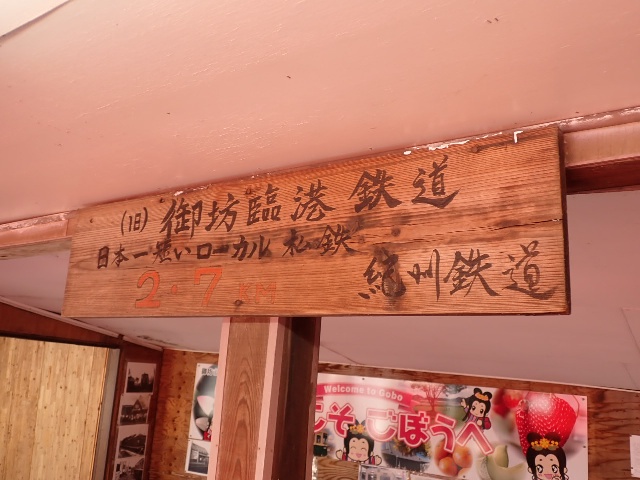 (旧)御坊臨港鉄道
日本一短いローカル私鉄
2.7KM 紀州鉄道
Welcome to Gobo
こそ ごぼうへ